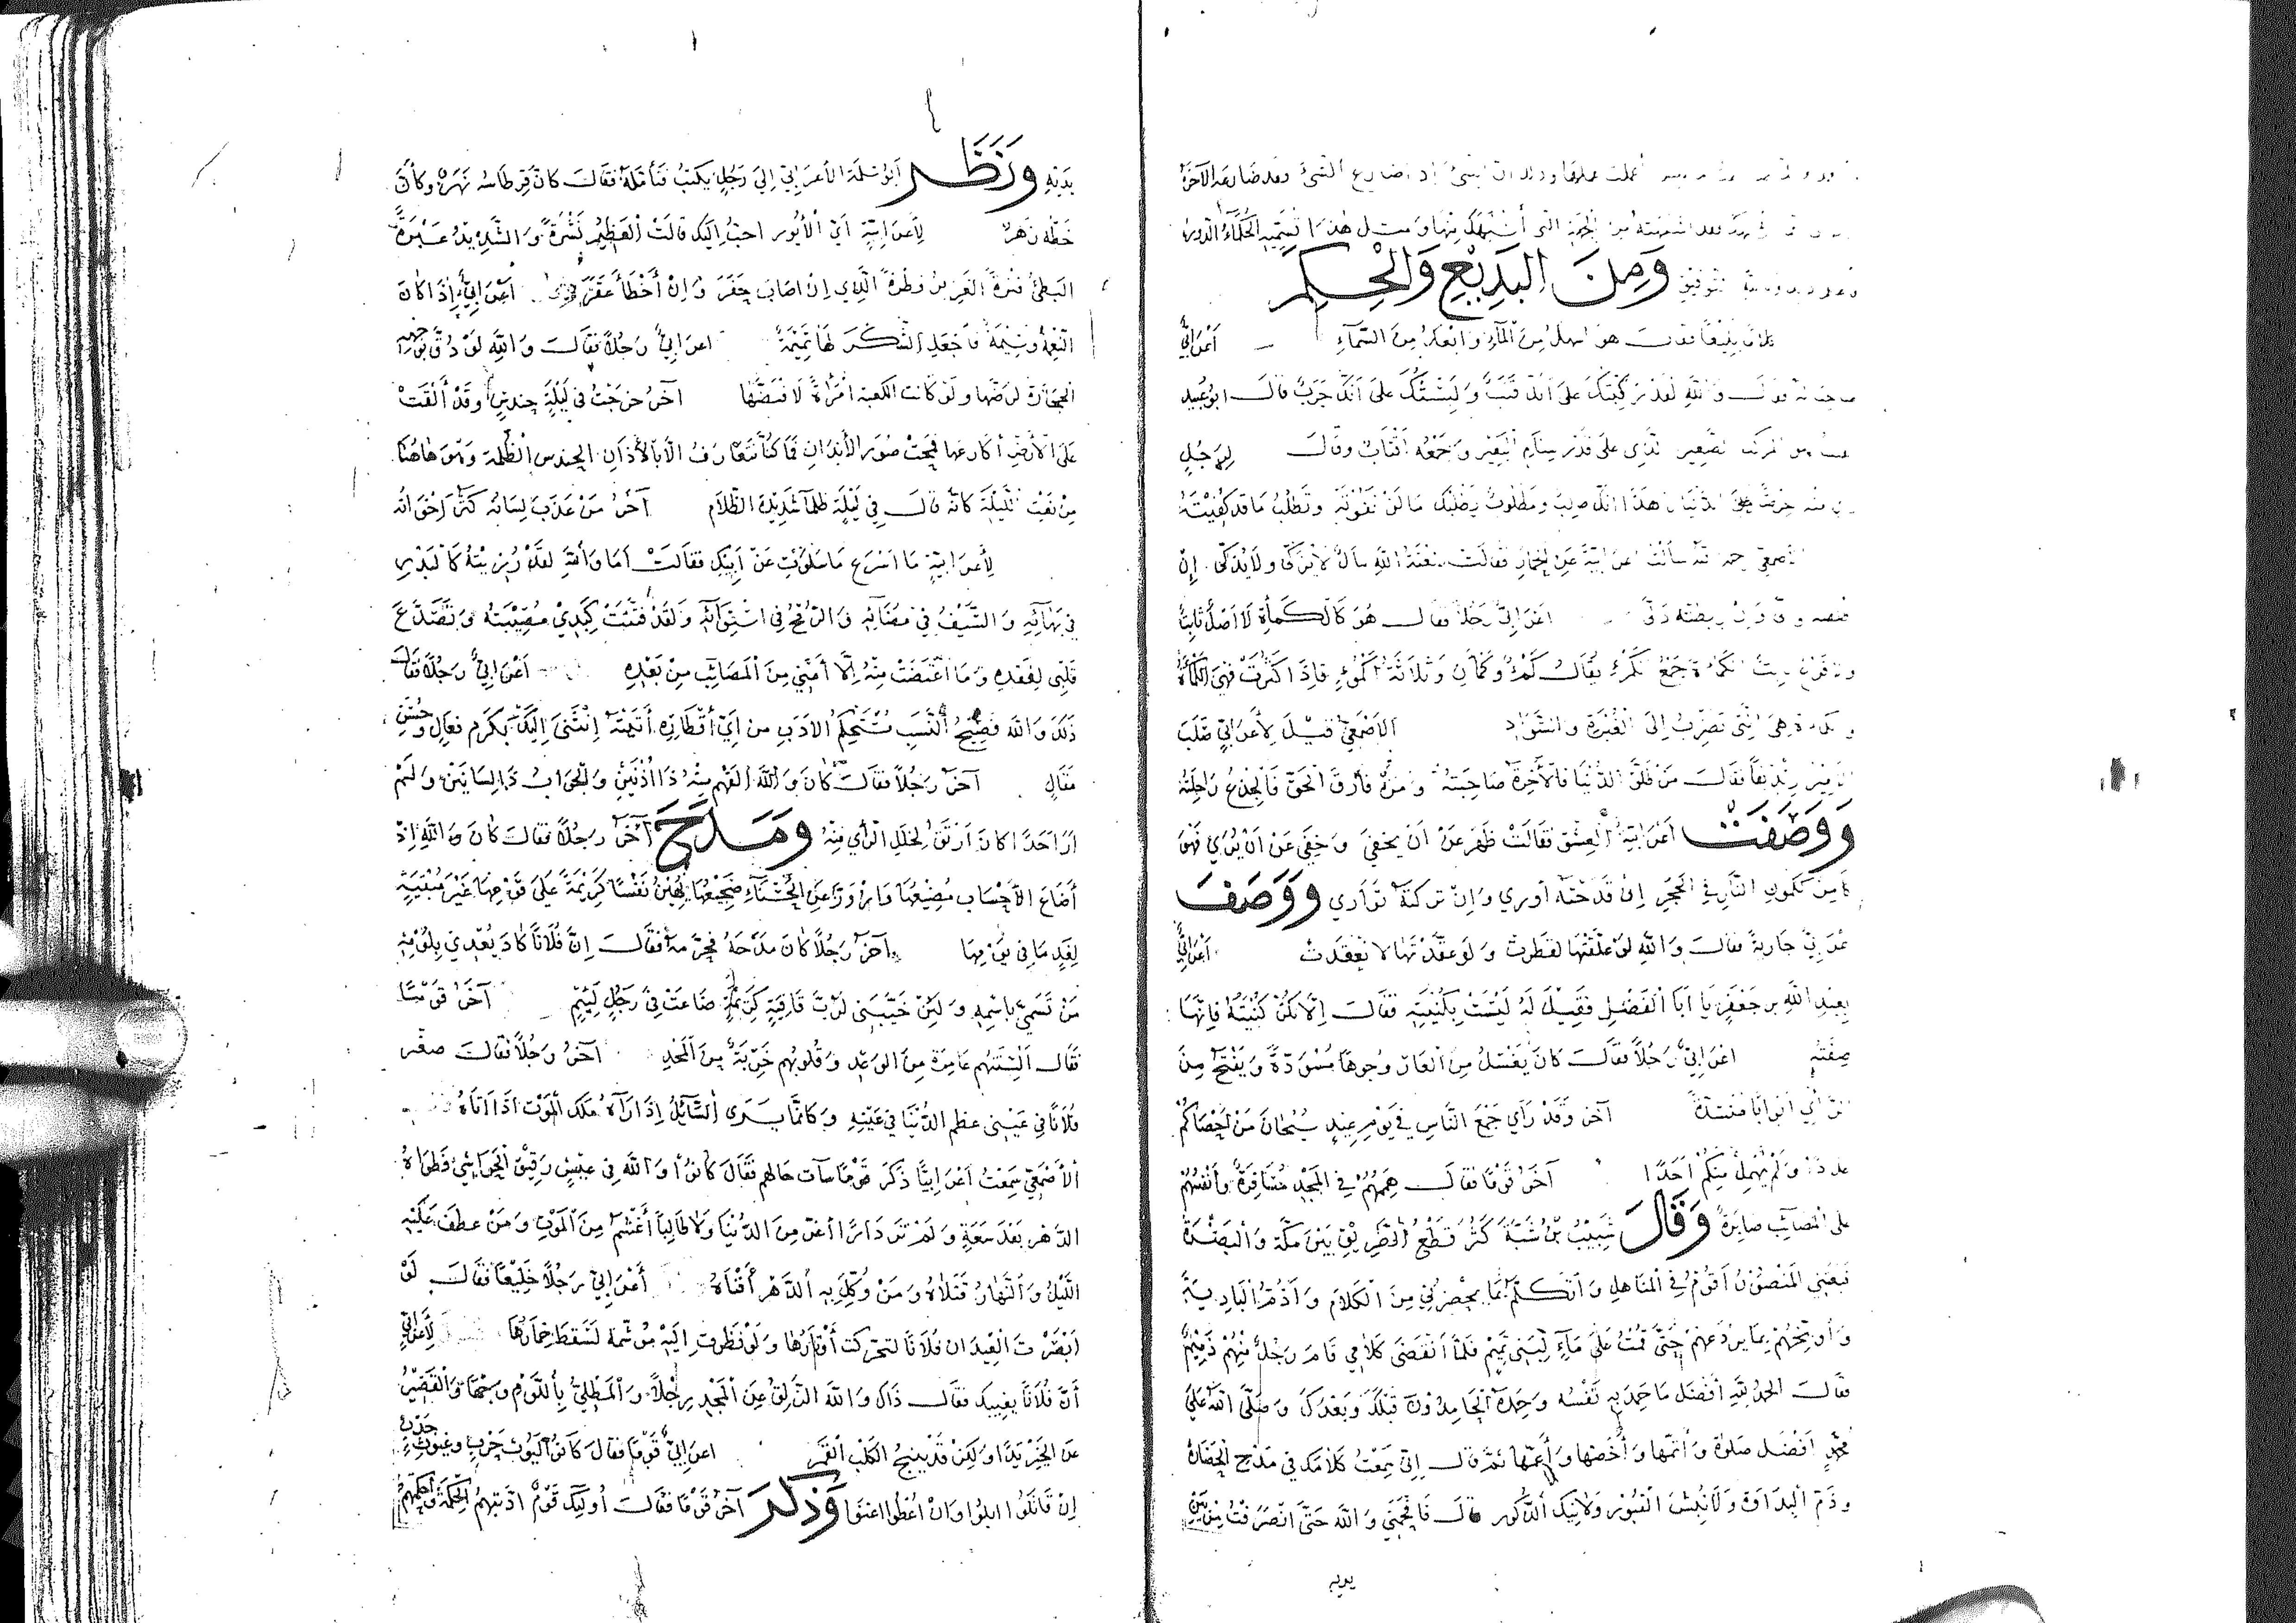 عملت عملها الشيء إذ اضارع الشيء فقد ضارعه الآخرة
فقد اشبهته من الجهة التي أشبهك منها ومثل هذا تسميه الحكماء الدور
التوفيق وَمِنَ البَدِيْعِ وَالْحِكِمِ
فلانا بليغا فقالت هو اسهل من الماء وابعد من السماء أعرابي
صاحبا له فقال والله لقد ركبتك على انك قتب ولبستك على انك جرب قال ابو عبيد
القتب هو المركب الصغير الذي على قدر سنام البعير وجمعه اقتاب وقال لرجل
الدنيا هذا انك طالب ومطلوب يطلبك ما لن تفوته وتطلب ما قد كفيته
الأصمعي رحمه الله سألت اعرابية عن الحمار فقالت لعنه الله مال لا يزكى ولا يذكى إن
وان ربطته دلى أعرابي رجلا فقال هو كالكمأة لا اصل ثابت
ولا فرع نابت الكمأة جمع كمء يقال كمء وكمآن وثلاثة أكمؤ فاذا كثرت فهي الكمأة
هي التي تضرب إلى الغبرة والسواد الاصمعي قيل لأعرابي صلب
الامير زنديقا فقال من طلق الدنيا فالآخرة صاحبته ومن فارق الحق فالجذع راحلته
وَوَصَفَتْ أعرابية العشق فقالت ظهر عن أن يخفى وخفي عن ان يرى فهو
كامن ككمون النار في الحجر إن قدحته أورى وان تركته توارى وَوَصَفَ
أعرابي جارية فقال والله لو علقتها لقطرت ولو عقدتها لانعقدت أعرابي
بعبد الله بن جعفر يا أبا الفضل فقيل له ليست بكنيته فقال الا تكن كنيته فانها
صفته اعرابي رجلا فقال كان يغسل من العار وجوها مسودة ويفتح من
الرأي أبوابا منسدة آخر وقد رأى جمع الناس في يوم عيد سبحان من أحصاكم
عددا ولم يهمل منكم أحدا آخر قوما فقال هممهم في المجد متنافرة وأنفسهم
على المصائب صابرة وَقَالَ شبيب بن شبة كثر قطع الطريق بين مكة والبصرة
فبعثني المنصور أقوم في المناهل وأتكلم بما يحضرني من الكلام وأذم البادية
وأوبخهم بما يردعهم حتى قمت على ماء لبني تميم فلما انقضى كلامي قام رجل منهم ذميم
فقال الحمد لله أفضل ما حمد به نفسه وحمده الحامدون قبلك وبعدك وصلى الله على
محمد افضل صلوة وأتمها وأخصها وأعمها ثم قال اني سمعت كلامك في مدح الحضارة
وذم البداوة ولا نبش القبور ولا نيك الذكور قال فافحمني والله حتى انصرفت من بين
يديه
يديه وَنَظَرَ أبو سلمة الأعرابي الى رجل يكتب فتأمله فقال كان قرطاسه نهره وكأن
خطه زهره لأعرابية اي الأيور احب إليك قالت العظيم نشرة والشديد عبرة
البطئ فترة الغزير قطرة الذي إن اصاب حفر وإن أخطأ عقر أعرابي إذا كان
النعمة وسيمة فاجعل الشكر لها تميمة اعرابي رجلا فقال والله لو دق بوجهه
الحجارة لرضها ولو كانت الكعبة امرأة لافتضها آخر خرجت في ليلة حندس وقد ألقت
على الأرض أكارعها فمحت صور الأبدان فما كنا نتعارف الا بالآذان الحندس الظلمة وهو هاهنا
من نعت الليلة كانه قال في ليلة ظلماء شديدة الظلام آخر من عذب لسانه كثر إخوانه
لأعرابية ما أسرع ما سلوت عن أبيك فقالت أما والله لقد رزيته كالبدر
في بهائه والسيف في مضائه والرمح في استوائه ولقد فتتت كبدي مصيبته وتصدع
قلبي لفقده وما اعتضت منه إلا أمني من المصائب من بعده أعرابي رجلا فقال
ذلك والله فصيح النسب مستحكم الادب من اي أقطاره أتيته انثنى اليك بكرم فعال وحسن
مقال آخر رجلا فقال كان والله الفهم منه ذا أذنين والجواب ذا لسانين ولم
أر احدا كان أرتق لخلل الرأي منه وَمَدَحَ آخر رجلا فقال كان والله إذ
أضاع الأحساب مضيعها وازور عن الحسناء ضجيعها يهين نفسا كريمة على قومها غير مبقية
لغد ما في يومها آخر رجلا كان مدحه فحرمه فقال ان فلانا كاد يعدي بلؤمه
من تسمى باسمه ولئن خيبني لرب قافية كريمة ضاعت في رجل لئيم آخر قوما
فقال ألسنتهم عامرة من الوعد وقلوبهم خربة من المجد آخر رجلا فقال صغر
فلانا في عيني عظم الدنيا في عينه وكانما يرى السائل إذا رآه ملك الموت اذا اتاه
الأصمعي سمعت أعرابيا ذكر قوما ساءت حالهم فقال كانوا والله في عيش رقيق الحواشي فطواه
الدهر بعد سعة ولم نر دارا أغر من الدنيا ولا طالبا أغشم من الموت ومن عطف عليه
الليل والنهار قتلاه ومن وكل به الدهر أفناه أعرابي رجلا خليعا فقال لو
ابصرت العيدان فلانا لتحركت أوتارها ولو نظرت اليه مومسة لسقط خمارها لأعرابي
أن فلانا يعيبك فقال ذاك والله الذلق عن المجد رجلا والمطلي باللؤم وجها والقصير
عن الخير يدا ولكن قد ينبح الكلب القمر اعرابي قوما فقال كانوا ليوث حرب وغيوث جدب
إن قاتلوا ابلوا وان أعطوا اغنوا وَذكَرَ آخر قوما فقال أوليك قوم ادبتهم الحكمة وأحكمتهم